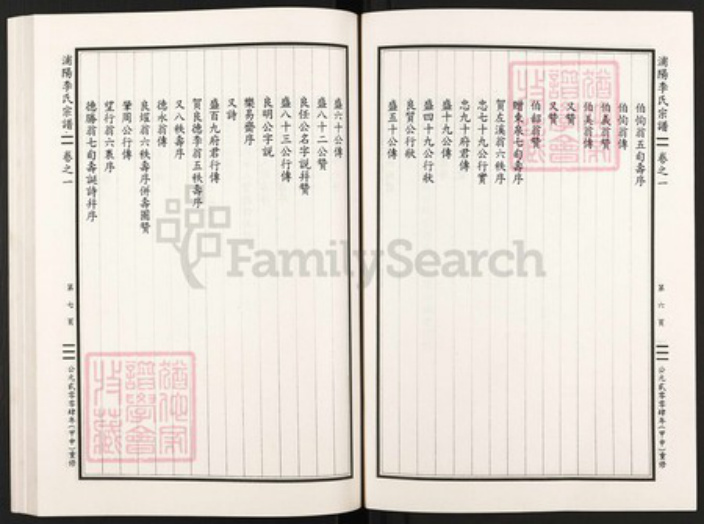 浦陽李氏宗譜 卷之一
第六頁
公元貳零零肆年(甲申)重修
伯恂翁五旬壽序
伯恂翁傳
伯義翁贊
伯美翁傳
又贊
又贊
伯韶翁贊
贈東泉七旬壽序
賀左溪翁六秩序
忠七十九公行實
忠九十府君傳
盛十九公傳
盛四十九公行狀
良賢公行狀
盛五十公傳
盛六十公傳
盛八十二公贊
良任公名字說拜贊
盛八十三公行傳
良明公字說
樂易齋序
又詩
盛百九府君行傳
賀良德李翁五秩壽序
又八秩壽序
德永翁傳
良煋翁六秩壽序併壽圖贊
肇周公行傳
望行翁六袠序
德勝翁七旬壽誕詩拜序
浦陽李氏宗譜 卷之一
第七頁
公元貳零零肆年(甲申)重修
FamilySearch